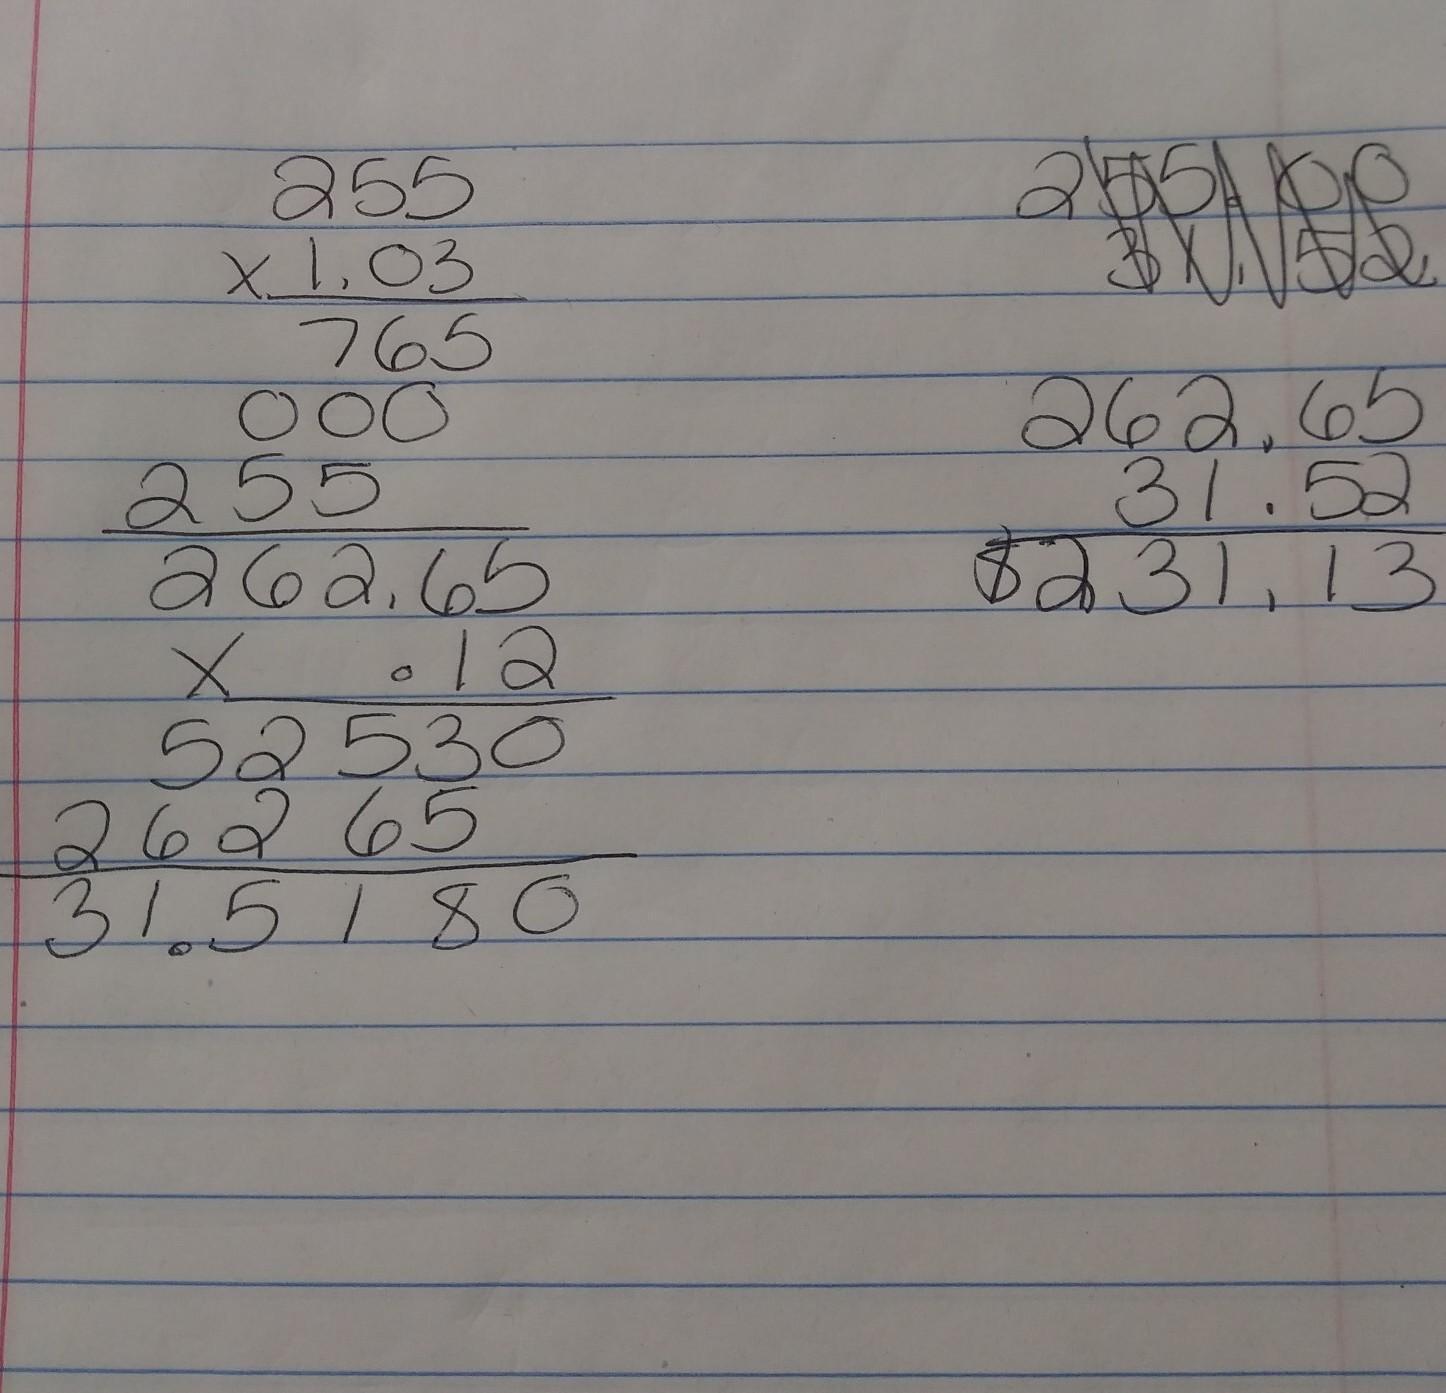 255
x 1.03
765
000
255
262.65
x .12
52530
26265
31.5180
255.00
31.52
262.65
31.52
$231.13